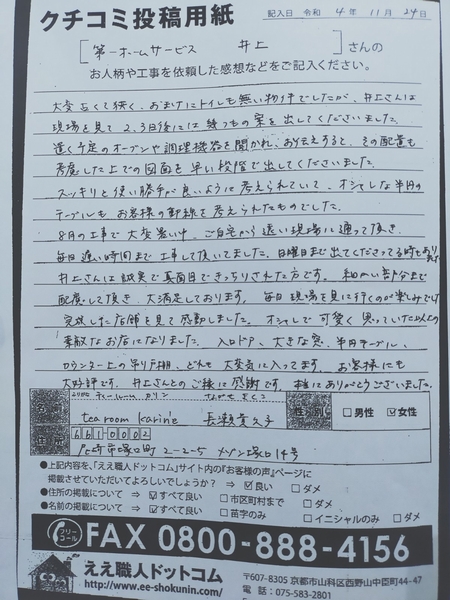 クチコミ投稿用紙
記入日 令和 4年 11月 24日
[ 第一ホームサービス 井上 ] さんの
お人柄や工事を依頼した感想などをご記入ください。
大変古くて狭く、おまけにトイレも無い物件でしたが、井上さんは
現場を見て2,3日後には幾つもの案を出してくださいました。
置く予定のオーブンや調理機器を聞かれ、お伝えすると、その配置も
考慮した上での図面を早い段階で出してくださいました。
スッキリと使い勝手が良いように考えられていて、オシャレな半円の
テーブルも、お客様の動線を考えられたものでした。
8月の工事で大変暑い中、ご自宅から遠い現場に通って頂き、
毎日遅い時間まで工事して頂いてました。日曜日まで出てくださってる時もあり
井上さんは誠実で真面目できっちりされた方です。細かい部分まで
配慮して頂き、大満足しております。毎日現場を見に行くのが楽しみでした
完成した店舗を見て感動しました。オシャレで可愛く思っていた以上の
素敵なお店になりました。入口ドア、大きな窓、半円テーブル、
カウンター上の吊り戸棚、どれも大変気に入ってます。お客様にも
大好評です。井上さんとのご縁に感謝です。本当にありがとうございました。
ティールーム カリン
tea room karine 長瀬貴久子
性別 □男性 ☑女性
6610002
尼崎市塚口町2-2-5 メゾン塚口14号
●上記内容を、「ええ職人ドットコム」サイト内の『お客様の声』ページに
掲載させていただいてよろしいでしょうか? ⇒ ☑良い □ダメ
●住所の掲載について ⇒ ☑すべて良い □市区町村まで □ダメ
●名前の掲載について ⇒ ☑すべて良い □苗字のみ □イニシャルのみ □ダメ
フリーコール FAX 0800-888-4156
ええ職人ドットコム
http://www.ee-shokunin.com/
〒607-8305 京都市山科区西野山中臣町44-47
電話:075-583-2801